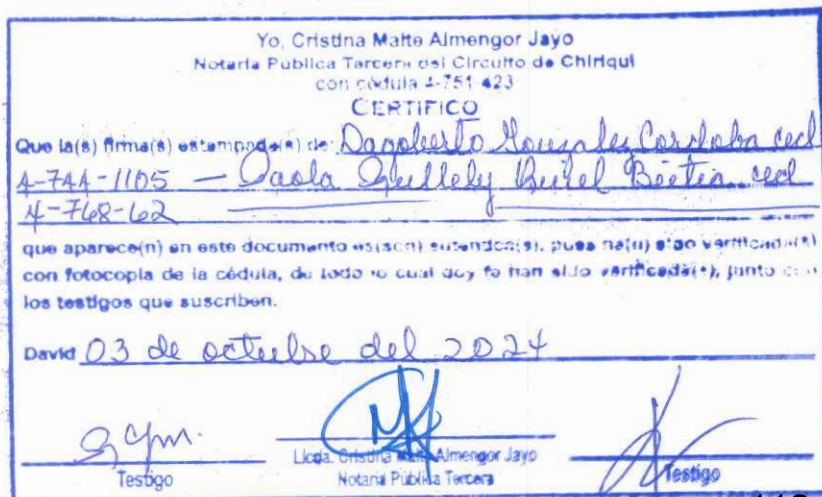 Yo, Cristina Maite Almengor Jayo
Notaria Pública Tercera del Circuito de Chiriquí
con cédula 4-751-423
CERTIFICO
Que la(s) firma(s) estampada(s) de: Dagoberto Gonzalez Cordoba ced
4-744-1105 — Paola
4-768-62
que aparece(n) en este documento es(son) autentica(s), pues ha(n) sido verificada(s)
con fotocopia de la cédula, de todo lo cual doy fe han sido verificada(s), junto con
los testigos que suscriben.
David 03 de octubre del 2024
Licda. Cristina Maite Almengor Jayo
Testigo Notaria Pública Tercera Testigo